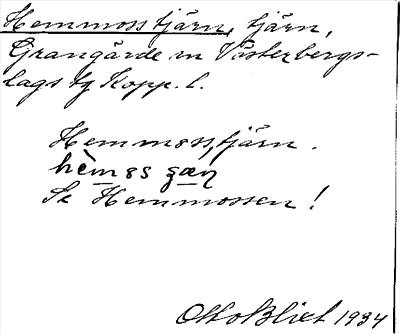 Hemmosstjärn, tjärn,
Grangärde sn Västerbergs-
lags tg Kopp. l.
Hemmosstjärn.
Se Hemmossen!
Otto Blixt 1934